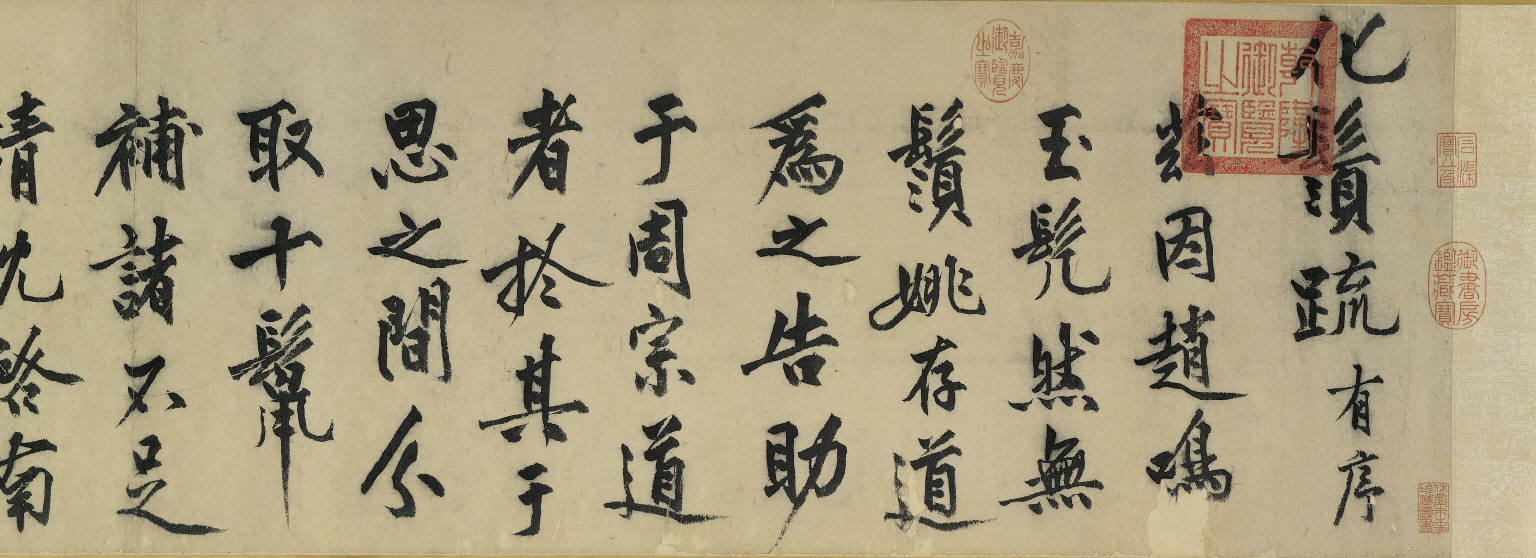 石渠寶笈
御書房鑑藏寶
化鬚疏有序
乾隆御覽之寶
茲因趙鳴
玉髡然無
嘉慶御覽之寶
鬚姚存道
爲之告助
于周宗道
者於其于
思之間分
取十鬣
補諸不足
請沈啓南